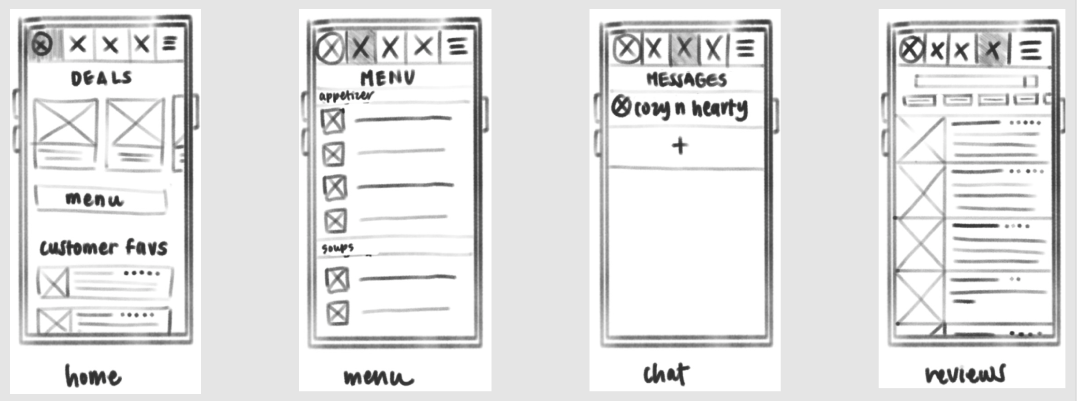 DEALS
menu
customer favs
home
MENU
appetizer
soups
menu
MESSAGES
cozy n hearty
+
chat
reviews